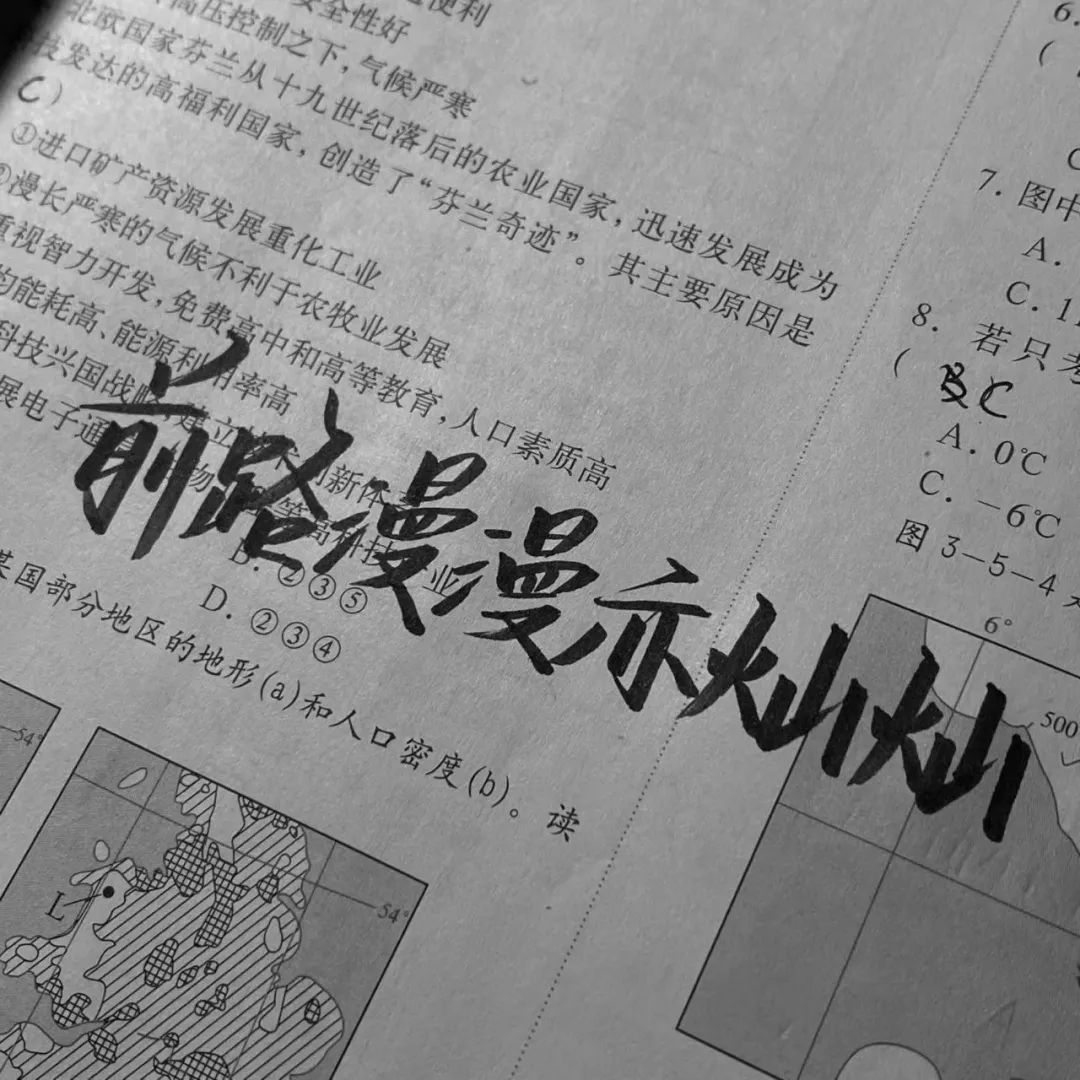 便利
安全性好
高压控制之下，气候严寒
北欧国家芬兰从十九世纪落后的农业国家，迅速发展成为
发达的高福利国家，创造了“芬兰奇迹”。其主要原因是
C）
①进口矿产资源发展重化工业
②漫长严寒的气候不利于农牧业发展
重视智力开发，免费高中和高等教育，人口素质高
均能耗高、能源利用率高
科技兴国战略，建立 创新体
展电子通 物 等高科技 业
B. ②③⑤
D. ②③④
前路漫漫亦灿灿
某国部分地区的地形(a)和人口密度(b)。读
54°
L
54°
6.
(
C
7. 图中
A.
C. 11
8. 若只考
( BC
A. 0℃
C. －6℃
图 3－5－4
6°
500
A